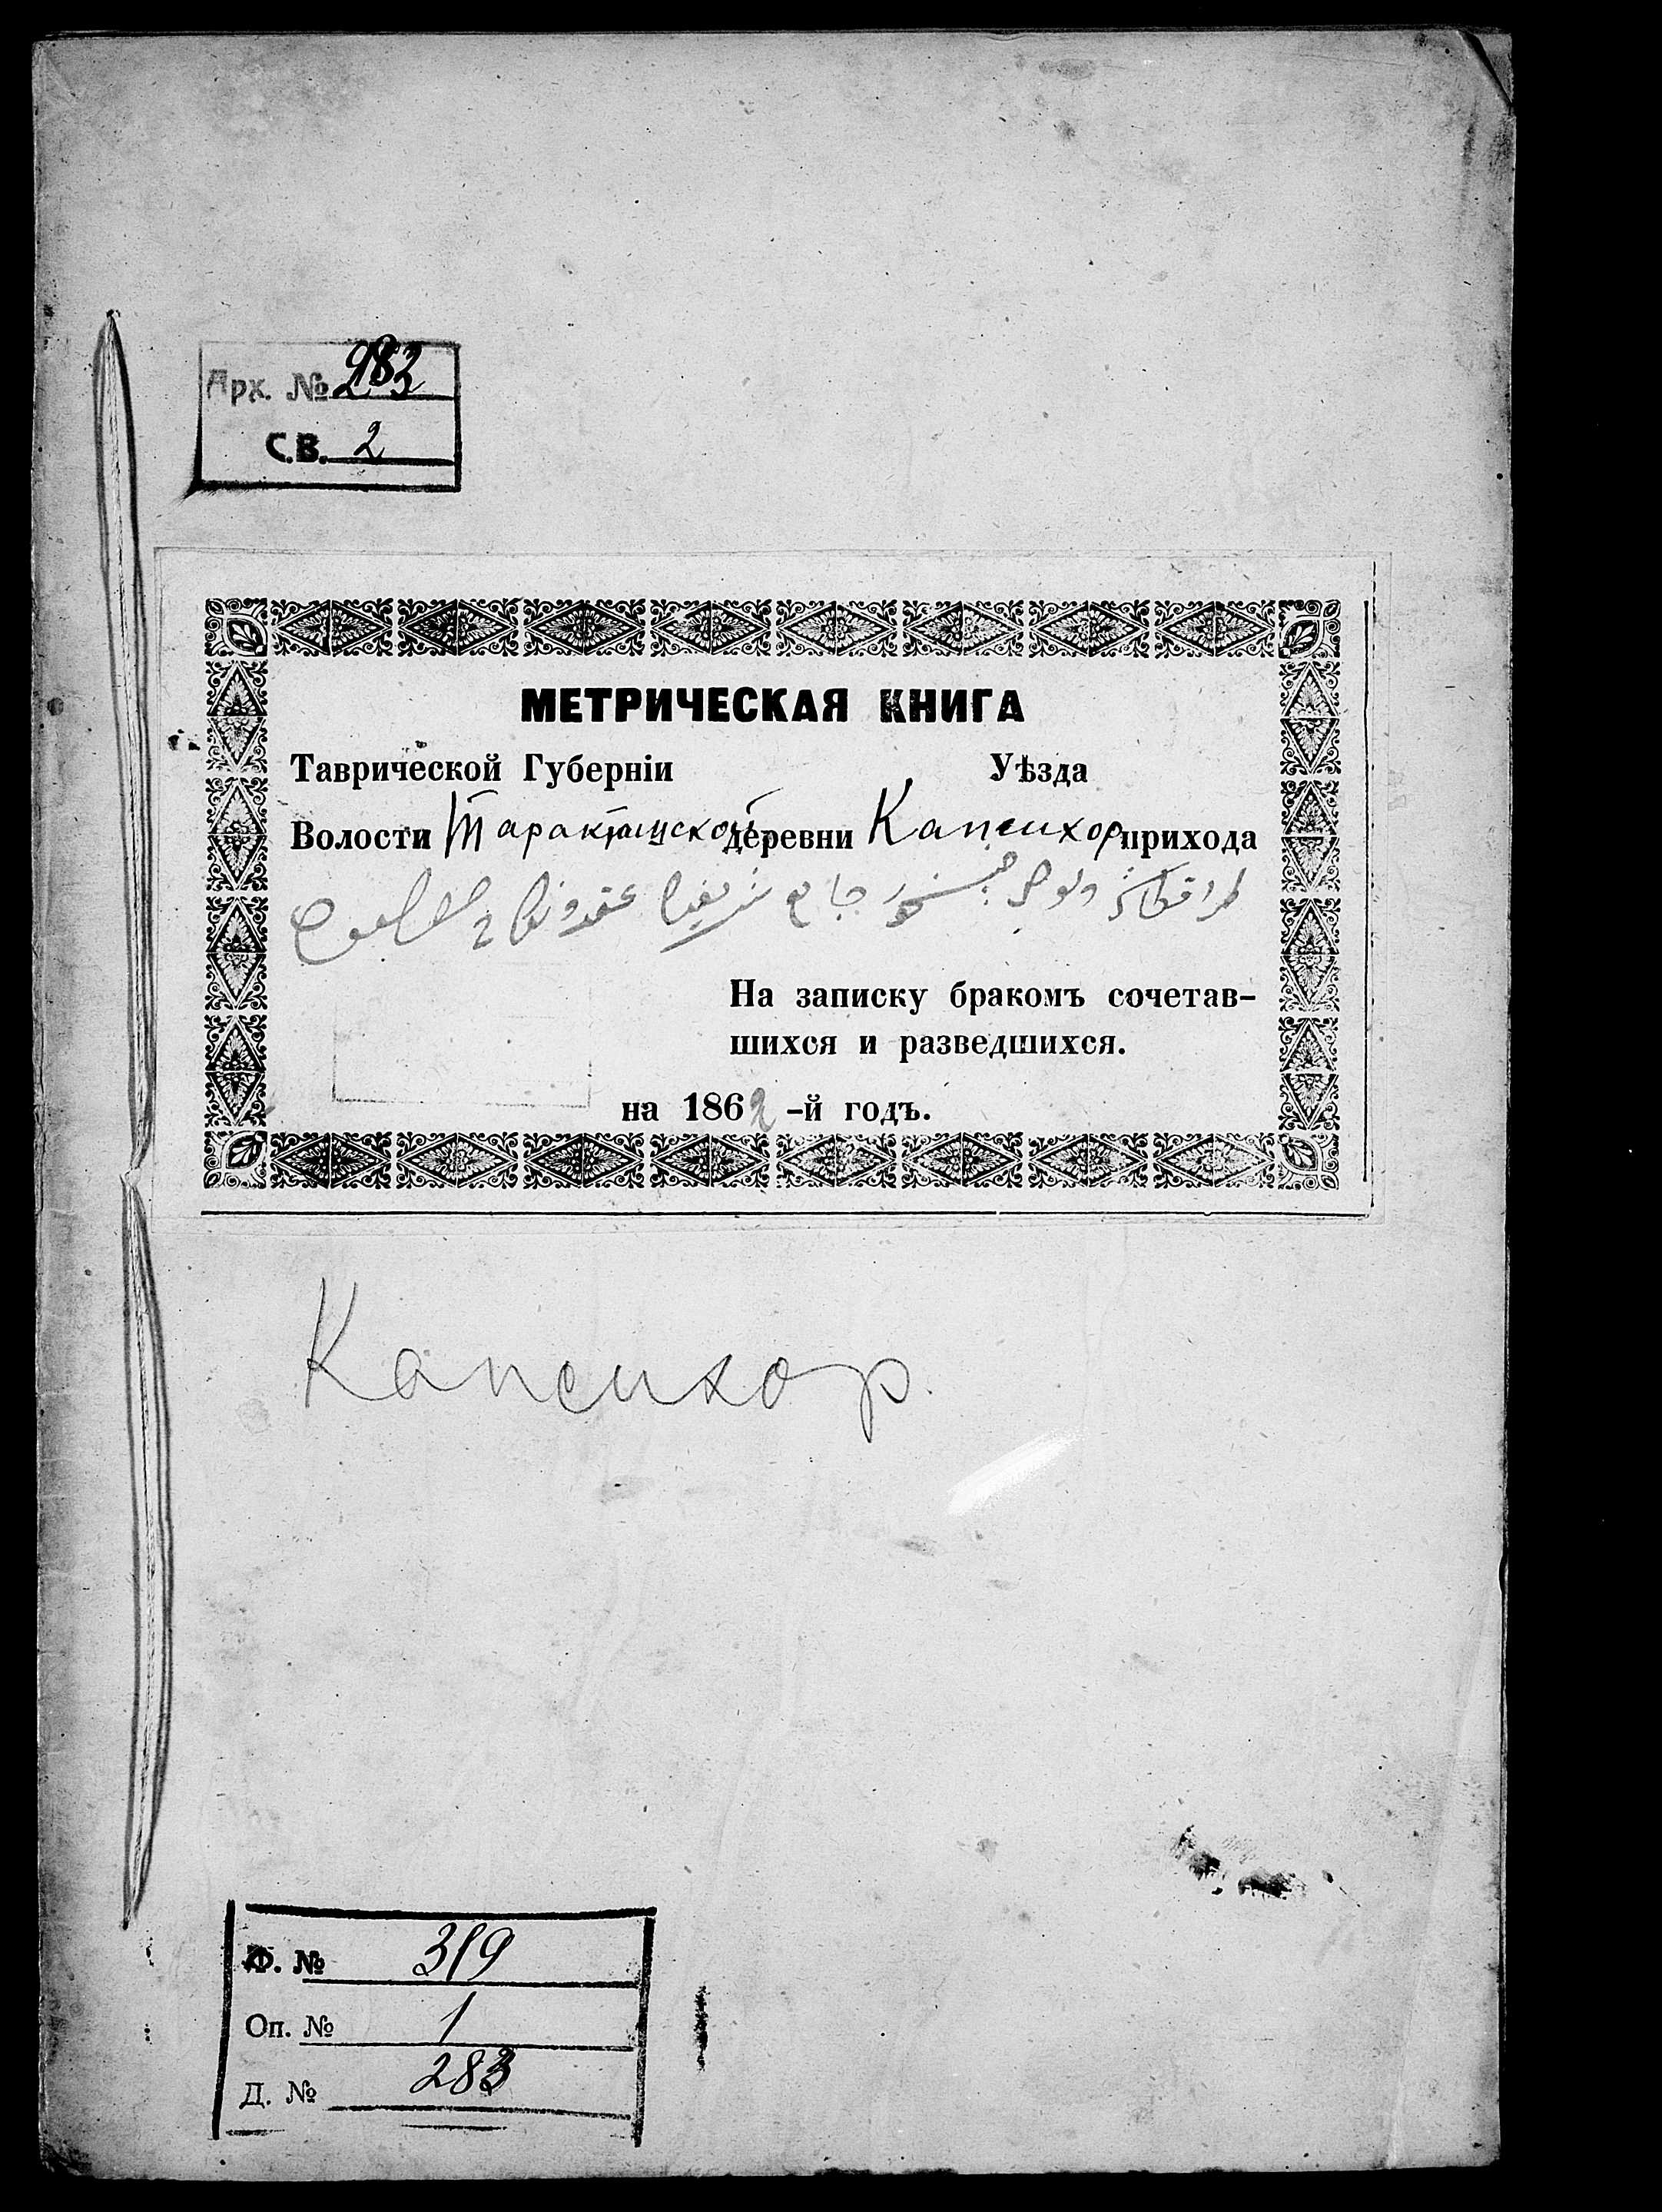 Арх. № 283
С.В. 2
МЕТРИЧЕСКАЯ КНИГА
Таврической Губерніи Уѣзда
Волости Таракташской деревни Капсихор прихода
جامع
На записку бракомъ сочетав-
шихся и разведшихся.
на 1862-й годъ.
Капсихор
Ф. № 319
Оп. № 1
Д. № 283